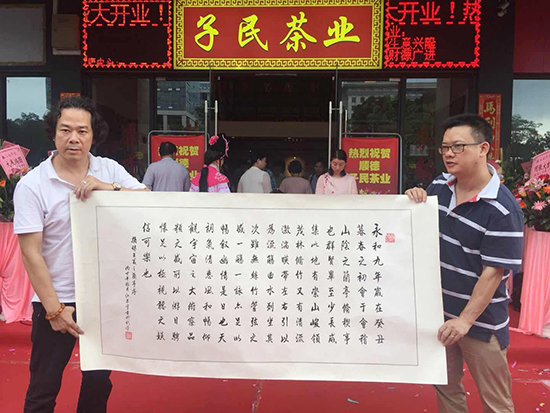 大开业！
子民茶业
大开业！
业！
生意兴隆
财源广进
热烈祝贺
顺德
热烈祝贺
顺德
子民茶业
永和九年歲在癸丑
暮春之初會于會稽
山陰之蘭亭脩禊事
也群賢畢至少長咸
集此地有崇山峻領
茂林脩竹又有清流
激湍映帶左右引以
為流觴曲水列坐其
次雖無絲竹管弦之
盛一觴一詠亦足以
暢敘幽情是日也天
朗氣清惠風和暢仰
觀宇宙之大俯察品
類之盛所以遊目騁
懷足以極視聽之娛
信可樂也